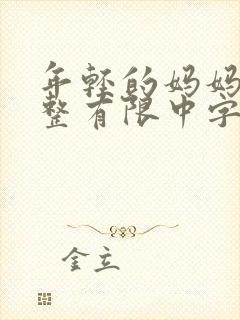 年轻的妈妈
整有限中字
金立